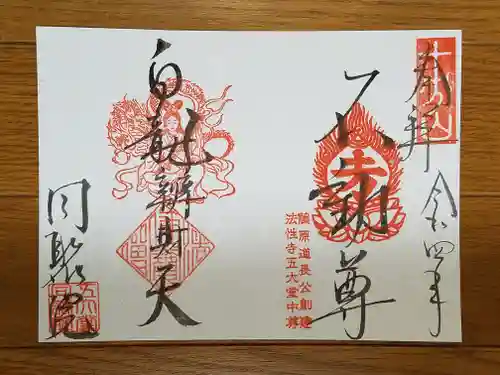 奉拝
令四年
不動尊
藤原道長公創建
法性寺五大堂中尊
白龍辨財天
同聚院